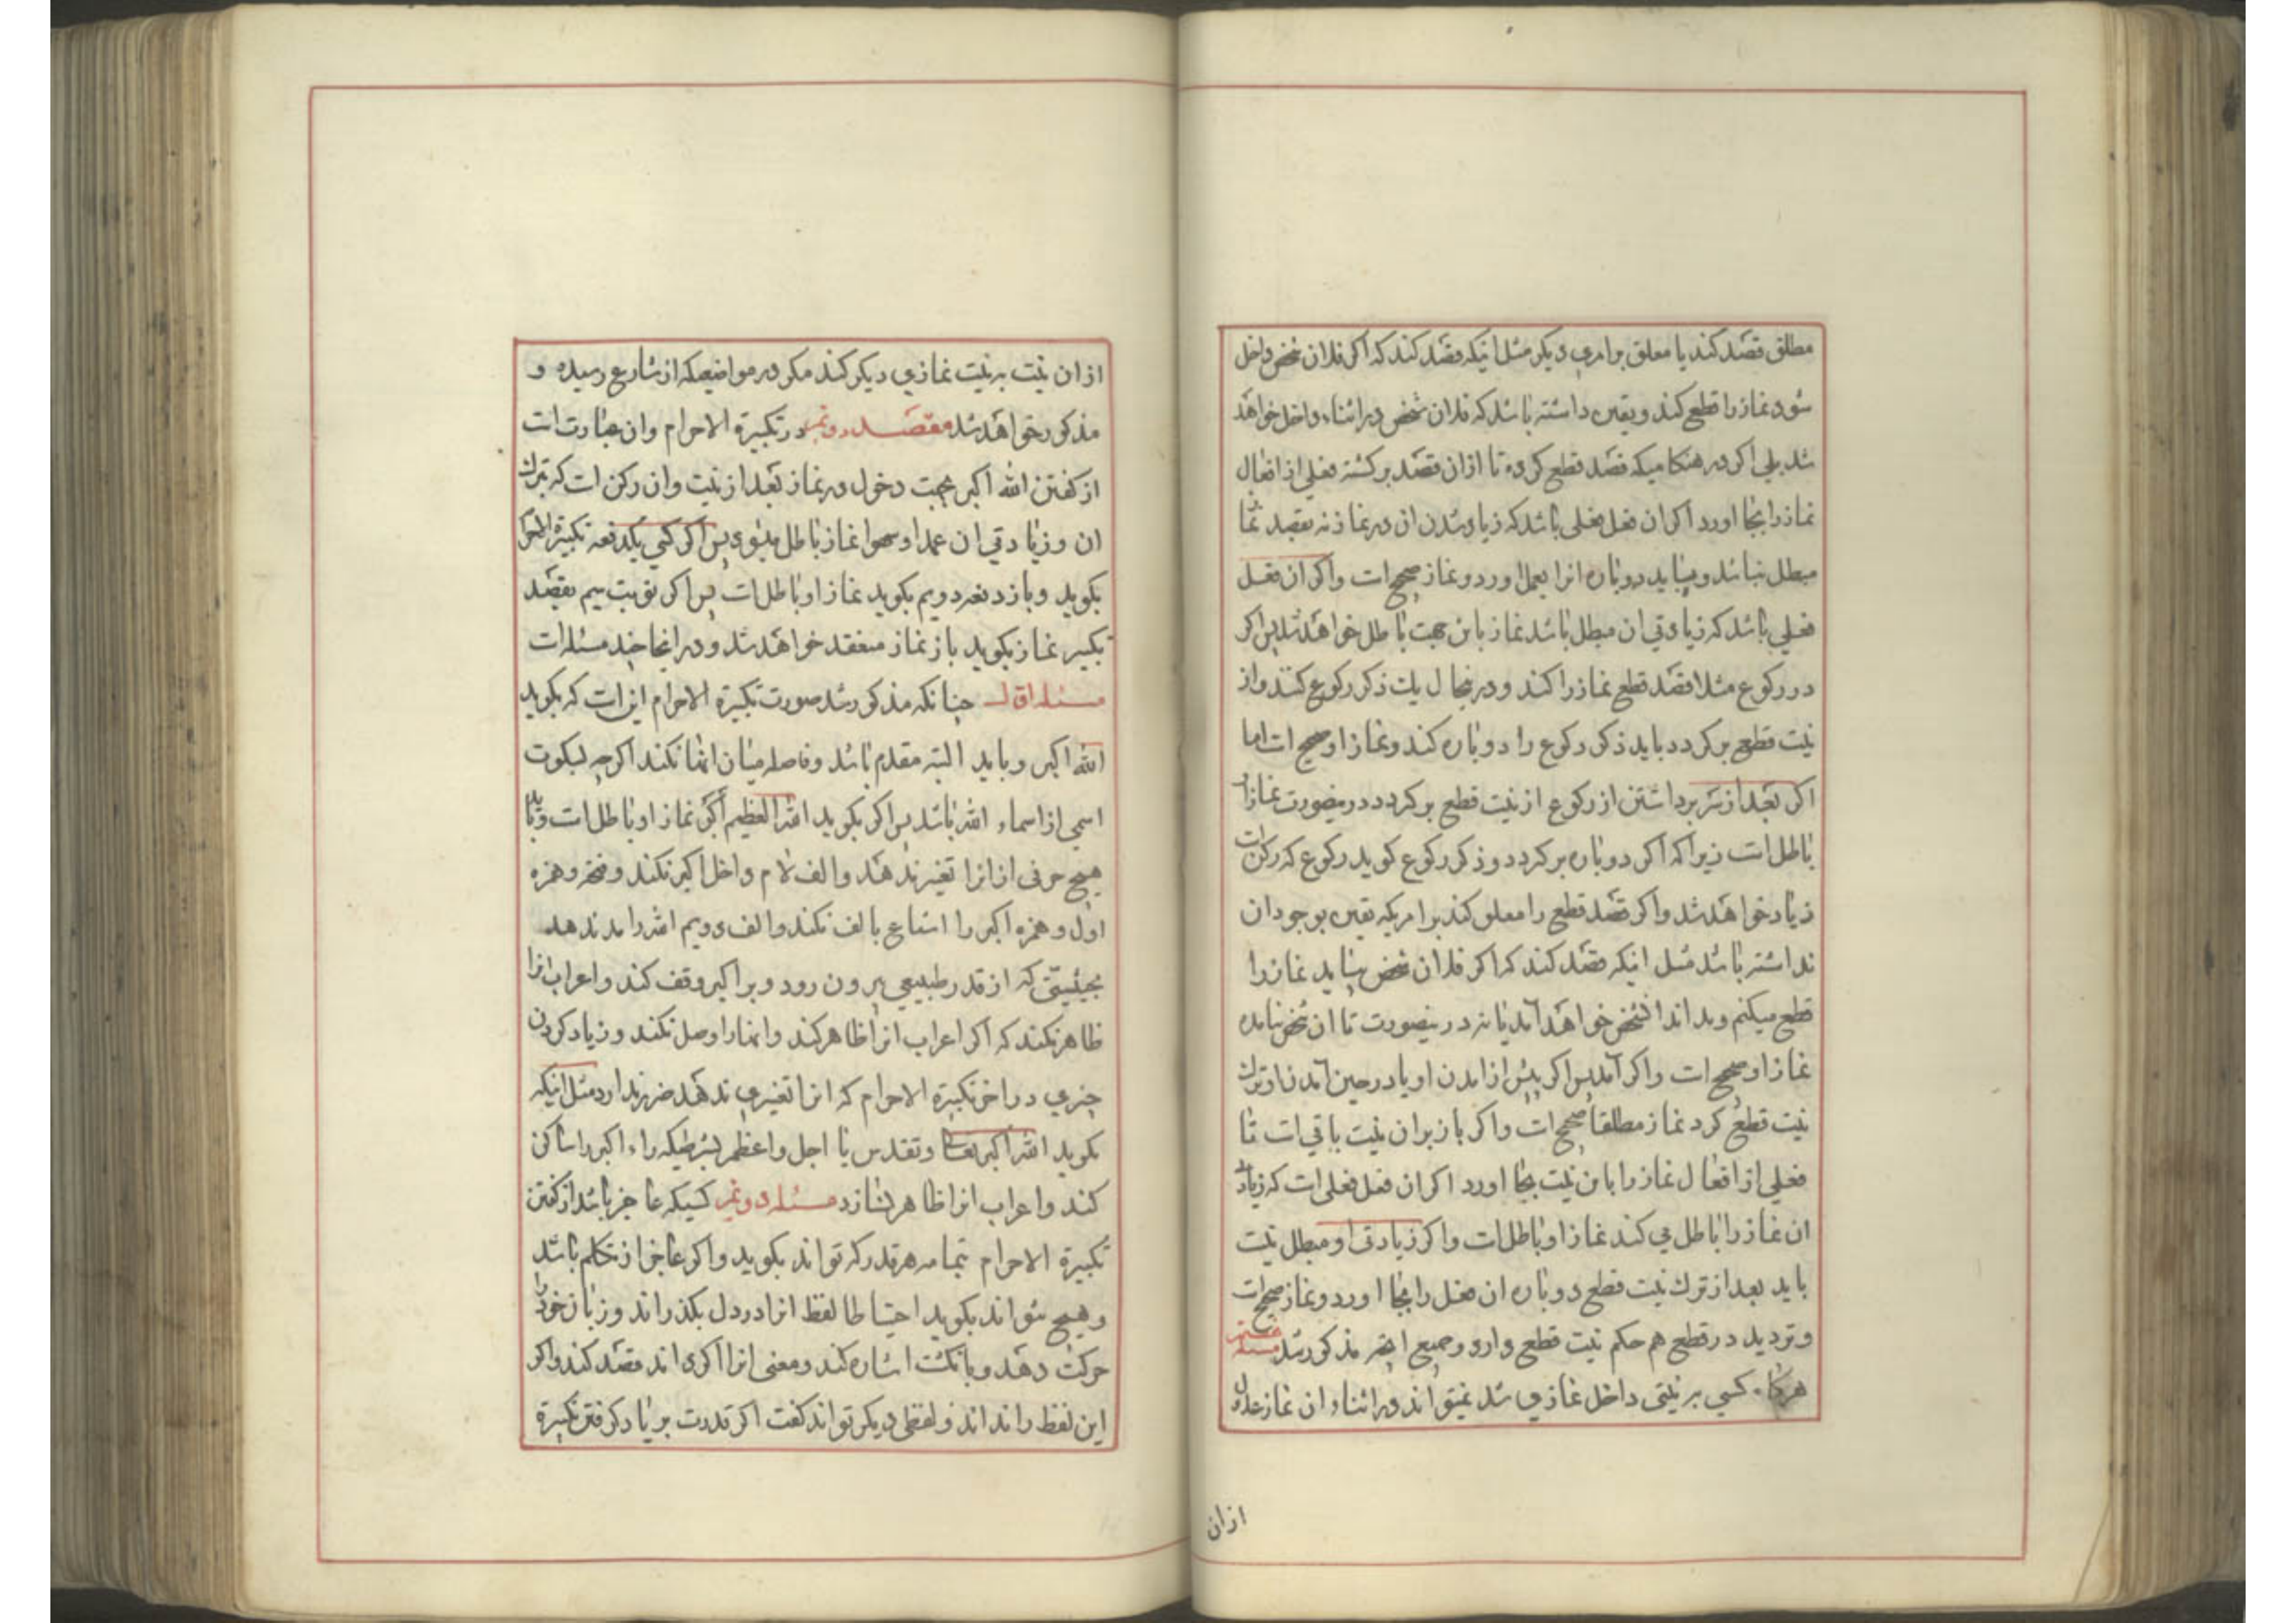 مطلق قصد کند یا معلق بر امری دیکر مثل انیکه قصد کند که اکر فلان شخص داخل
شود نماز را قطع کند ویقین داشته باشد که فلان شخص در اثناء داخل خواهد
شد بلی اکر در هنکامیکه قصد قطع کرده تا ازان قصد برکشته فعلی از افعال
نماز را بجا اورد اکر ان فعل فعلی باشد که زیاد شدن ان در نماز نه بقصد نما
مبطل نباشد و بیاید دوباره انرا بعمل اورد ونماز صحیح است واکر ان فعل
فعلی باشد که زیادتی ان مبطل باشد نماز باین جهت باطل خواهد شد پس اکر
در رکوع مثلا قصد قطع نماز را کند ودر انحال یك ذکر رکوع کند واز
نیت قطع برکردد باید ذکر رکوع را دوباره کند ونماز او صحیح است اما
اکر بعد از سر برداشتن از رکوع از نیت قطع برکردد درینصورت نماز او
باطل است زیرا که اکر دوباره برکردد و ذکر رکوع کوید رکوع که رکن است
زیاد خواهد شد واکر قصد قطع را معلق کند بر امریکه یقین بوجود ان
نداشته باشد مثل انیکه قصد کند که اکر فلان شخص بیاید نماز را
قطع میکنم وبداند انشخص خواهد آمد یا نه درینصورت تا ان شخص نیامده
نماز او صحیح است واکر آمد پس اکر پیش از امدن او یا در حین آمدن او ترك
نیت قطع کرد نماز مطلقا صحیح است واکر باز بران نیت باقی است تا
فعلی از افعال نماز را باین نیت بجا اورد اکر ان فعل فعلی است که زیاد
ان نماز را باطل می کند نماز او باطل است واکر زیادتی او مبطل نیست
باید بعد از ترك نیت قطع دوباره ان فعل را بجا اورد ونماز صحیح است
وتردید در قطع هم حکم نیت قطع دارد وجمیع انچه مذکور شد مسئله
هرکاه کسی بر نیتی داخل نمازی شد نمیتواند در اثناء ان نماز عدول
ازان
ازان نیت به نیت نمازی دیکر کند مکر در مواضیعکه از شارع رسیده و
مذکور خواهد شد مقصد دوئم در تکبیرة الاحرام وان عبارت است
از کفتن الله اکبر بجهت دخول در نماز بعد از نیت وان رکن است که بترك
ان وزیادتی ان عمدا وسهوا نماز باطل میشود پس اکر کسی یکدفعه تکبیرة الاحرام
بکوید وباز دفعه دویم بکوید نماز او باطل است پس اکر نوبت سیم بقصد
تکبیر نماز بکوید باز نماز منعقد خواهد شد ودر اینجا چند مسئله است
مسئله اول چنانکه مذکور شد صورت تکبیرة الاحرام این است که بکوید
الله اکبر وباید البته مقدم باشد وفاصله میان انها نکند اکرچه بسکوت
اسمی از اسماء الله باشد پس اکر بکوید الله العظیم أکبر نماز او باطل است وباید
هیچ حرفی ازانرا تغیر ندهد والف لام داخل اکبر نکند وفتحه وهمزه
اول وهمزه اکبر را اشباع بالف نکند والف دویم الله را مد ندهد
بحیثیتی که از قدر طبیعی بیرون رود وبر اکبر وقف کند واعراب انرا
ظاهر نکند که اکر اعراب انرا ظاهر کند وانها را وصل نکند وزیاد کردن
چیزی در اخر تکبیرة الاحرام که انرا تغیری ندهد ضرر ندارد مثل انیکه
بکوید الله اکبر تعالی وتقدس یا اجل واعظم بشرطیکه راء اکبر را ساکن
کند واعراب انرا ظاهر نسازد مسئله دوئم کسیکه عاجز باشد از کفتن
تکبیرة الاحرام بتمامه هرقدر که تواند بکوید واکر عاجز از تکلم باشد
وهیچ نتواند بکوید احتیاطا لفظ انرا در دل بکذراند وزبان خود را
حرکت دهد وبانکشت اشاره کند ومعنی انرا اکر داند قصد کند واکر
این لفظ را نداند ولفظی دیکر تواند کفت اکر قدرت بر یاد کرفتن تکبیرة